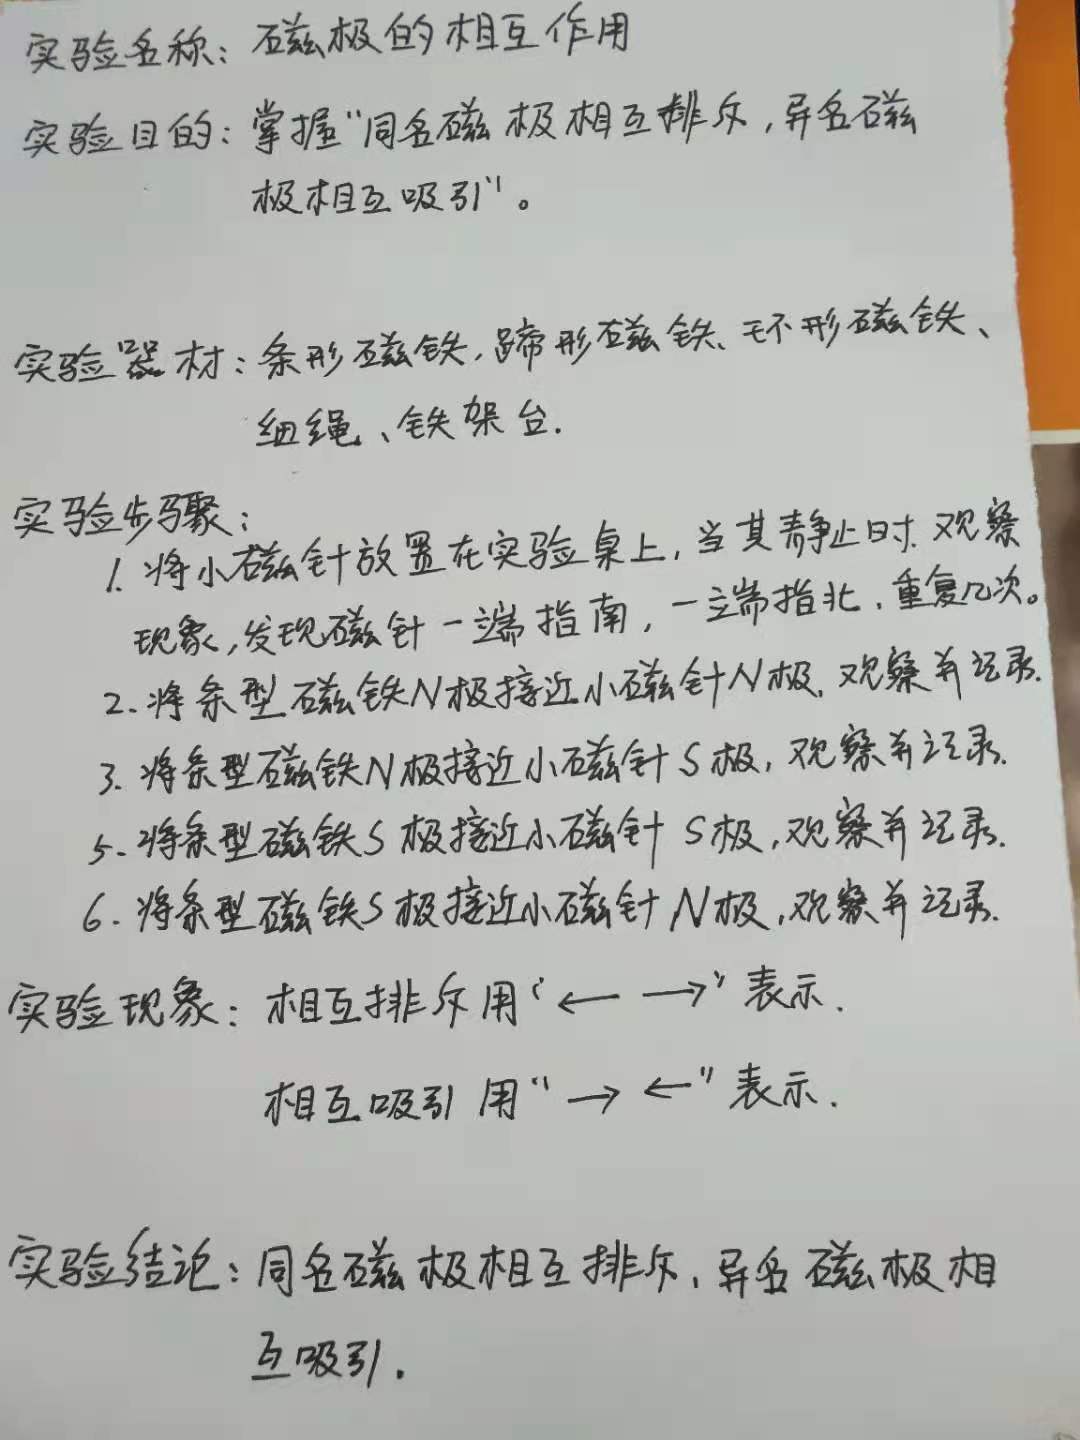 实验名称：磁极的相互作用
实验目的：掌握“同名磁极相互排斥，异名磁
极相互吸引”。
实验器材：条形磁铁，蹄形磁铁、环形磁铁、
细绳、铁架台.
实验步骤：
1. 将小磁针放置在实验桌上，当其静止时.观察
现象，发现磁针一端指南，一端指北，重复几次。
2. 将条型磁铁N极接近小磁针N极，观察并记录.
3. 将条型磁铁N极接近小磁针S极，观察并记录.
5. 将条型磁铁S极接近小磁针S极，观察并记录.
6. 将条型磁铁S极接近小磁针N极，观察并记录.
实验现象：相互排斥用“← →”表示.
相互吸引用“→ ←”表示.
实验结论：同名磁极相互排斥、异名磁极相
互吸引.